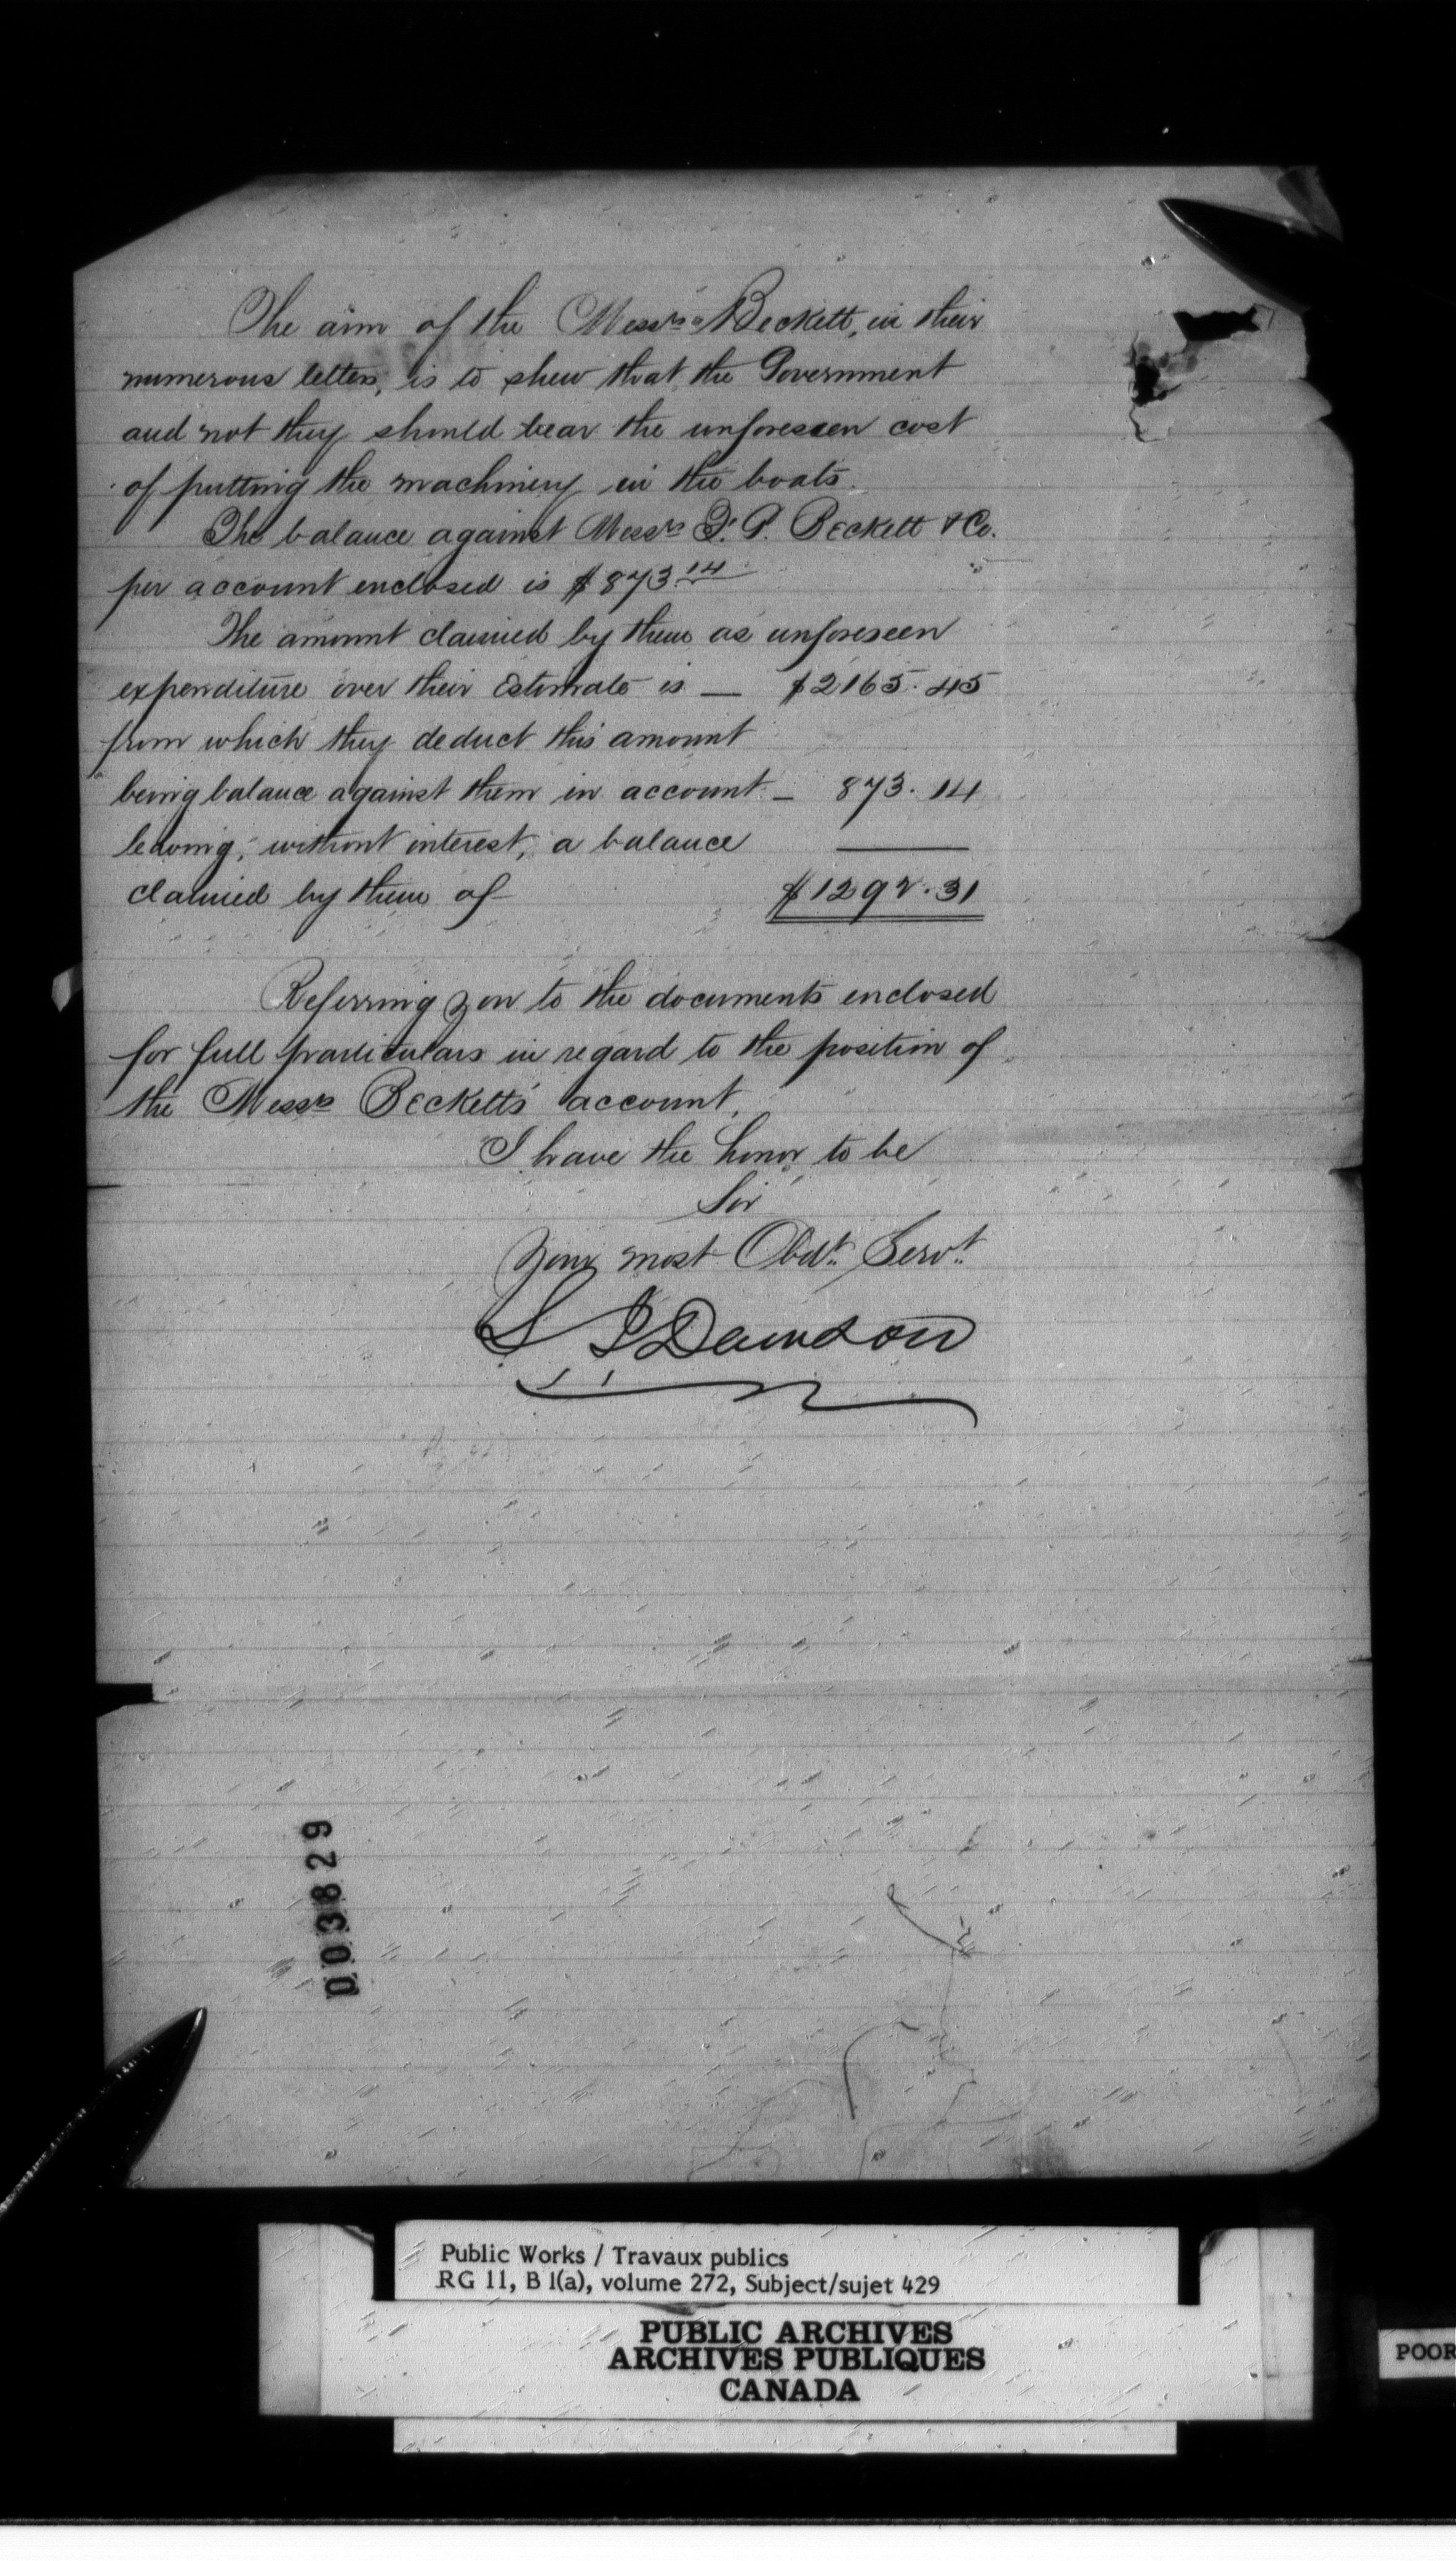 The aim of the Messrs Beckett, in their
numerous letters, is to shew that the Government
and not they should bear the unforeseen cost
of putting the machinery in the boats.
The balance against Messrs F. G. Beckett & Co.
per account enclosed is $873.14
The amount claimed by them as unforeseen
expenditure over their Estimate is — $2165.45
from which they deduct this amount
being balance against them in account — 873.14
leaving, without interest, a balance
claimed by them of $1292.31
Referring you to the documents enclosed
for full particulars in regard to the position of
the Messrs Becketts' account,
I have the honor to be
Sir
Your most Obdt. Servt.
S J Dawson
003829
Public Works / Travaux publics
RG 11, B 1(a), volume 272, Subject/sujet 429
PUBLIC ARCHIVES
ARCHIVES PUBLIQUES
CANADA
POOR